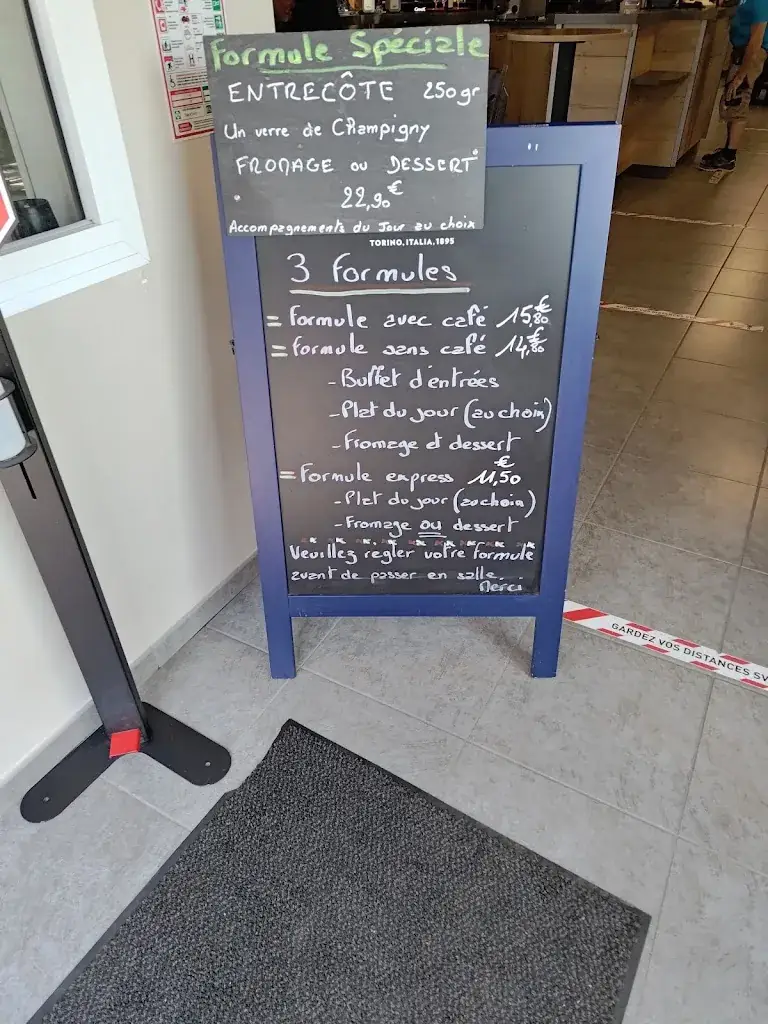 Formule Spéciale
ENTRECÔTE 250gr
Un verre de Champigny
FROMAGE ou DESSERT
22,90€
Accompagnements du Jour au choix
TORINO, ITALIA, 1895
3 formules
= formule avec café 15,80€
= formule sans café 14,80€
- Buffet d'entrées
- Plat du jour (au choix)
- Fromage et dessert
= Formule express 11,50€
- Plat du jour (au choix)
- Fromage ou dessert
Veuillez regler votre formule
avant de passer en salle...
Merci
GARDEZ VOS DISTANCES SV